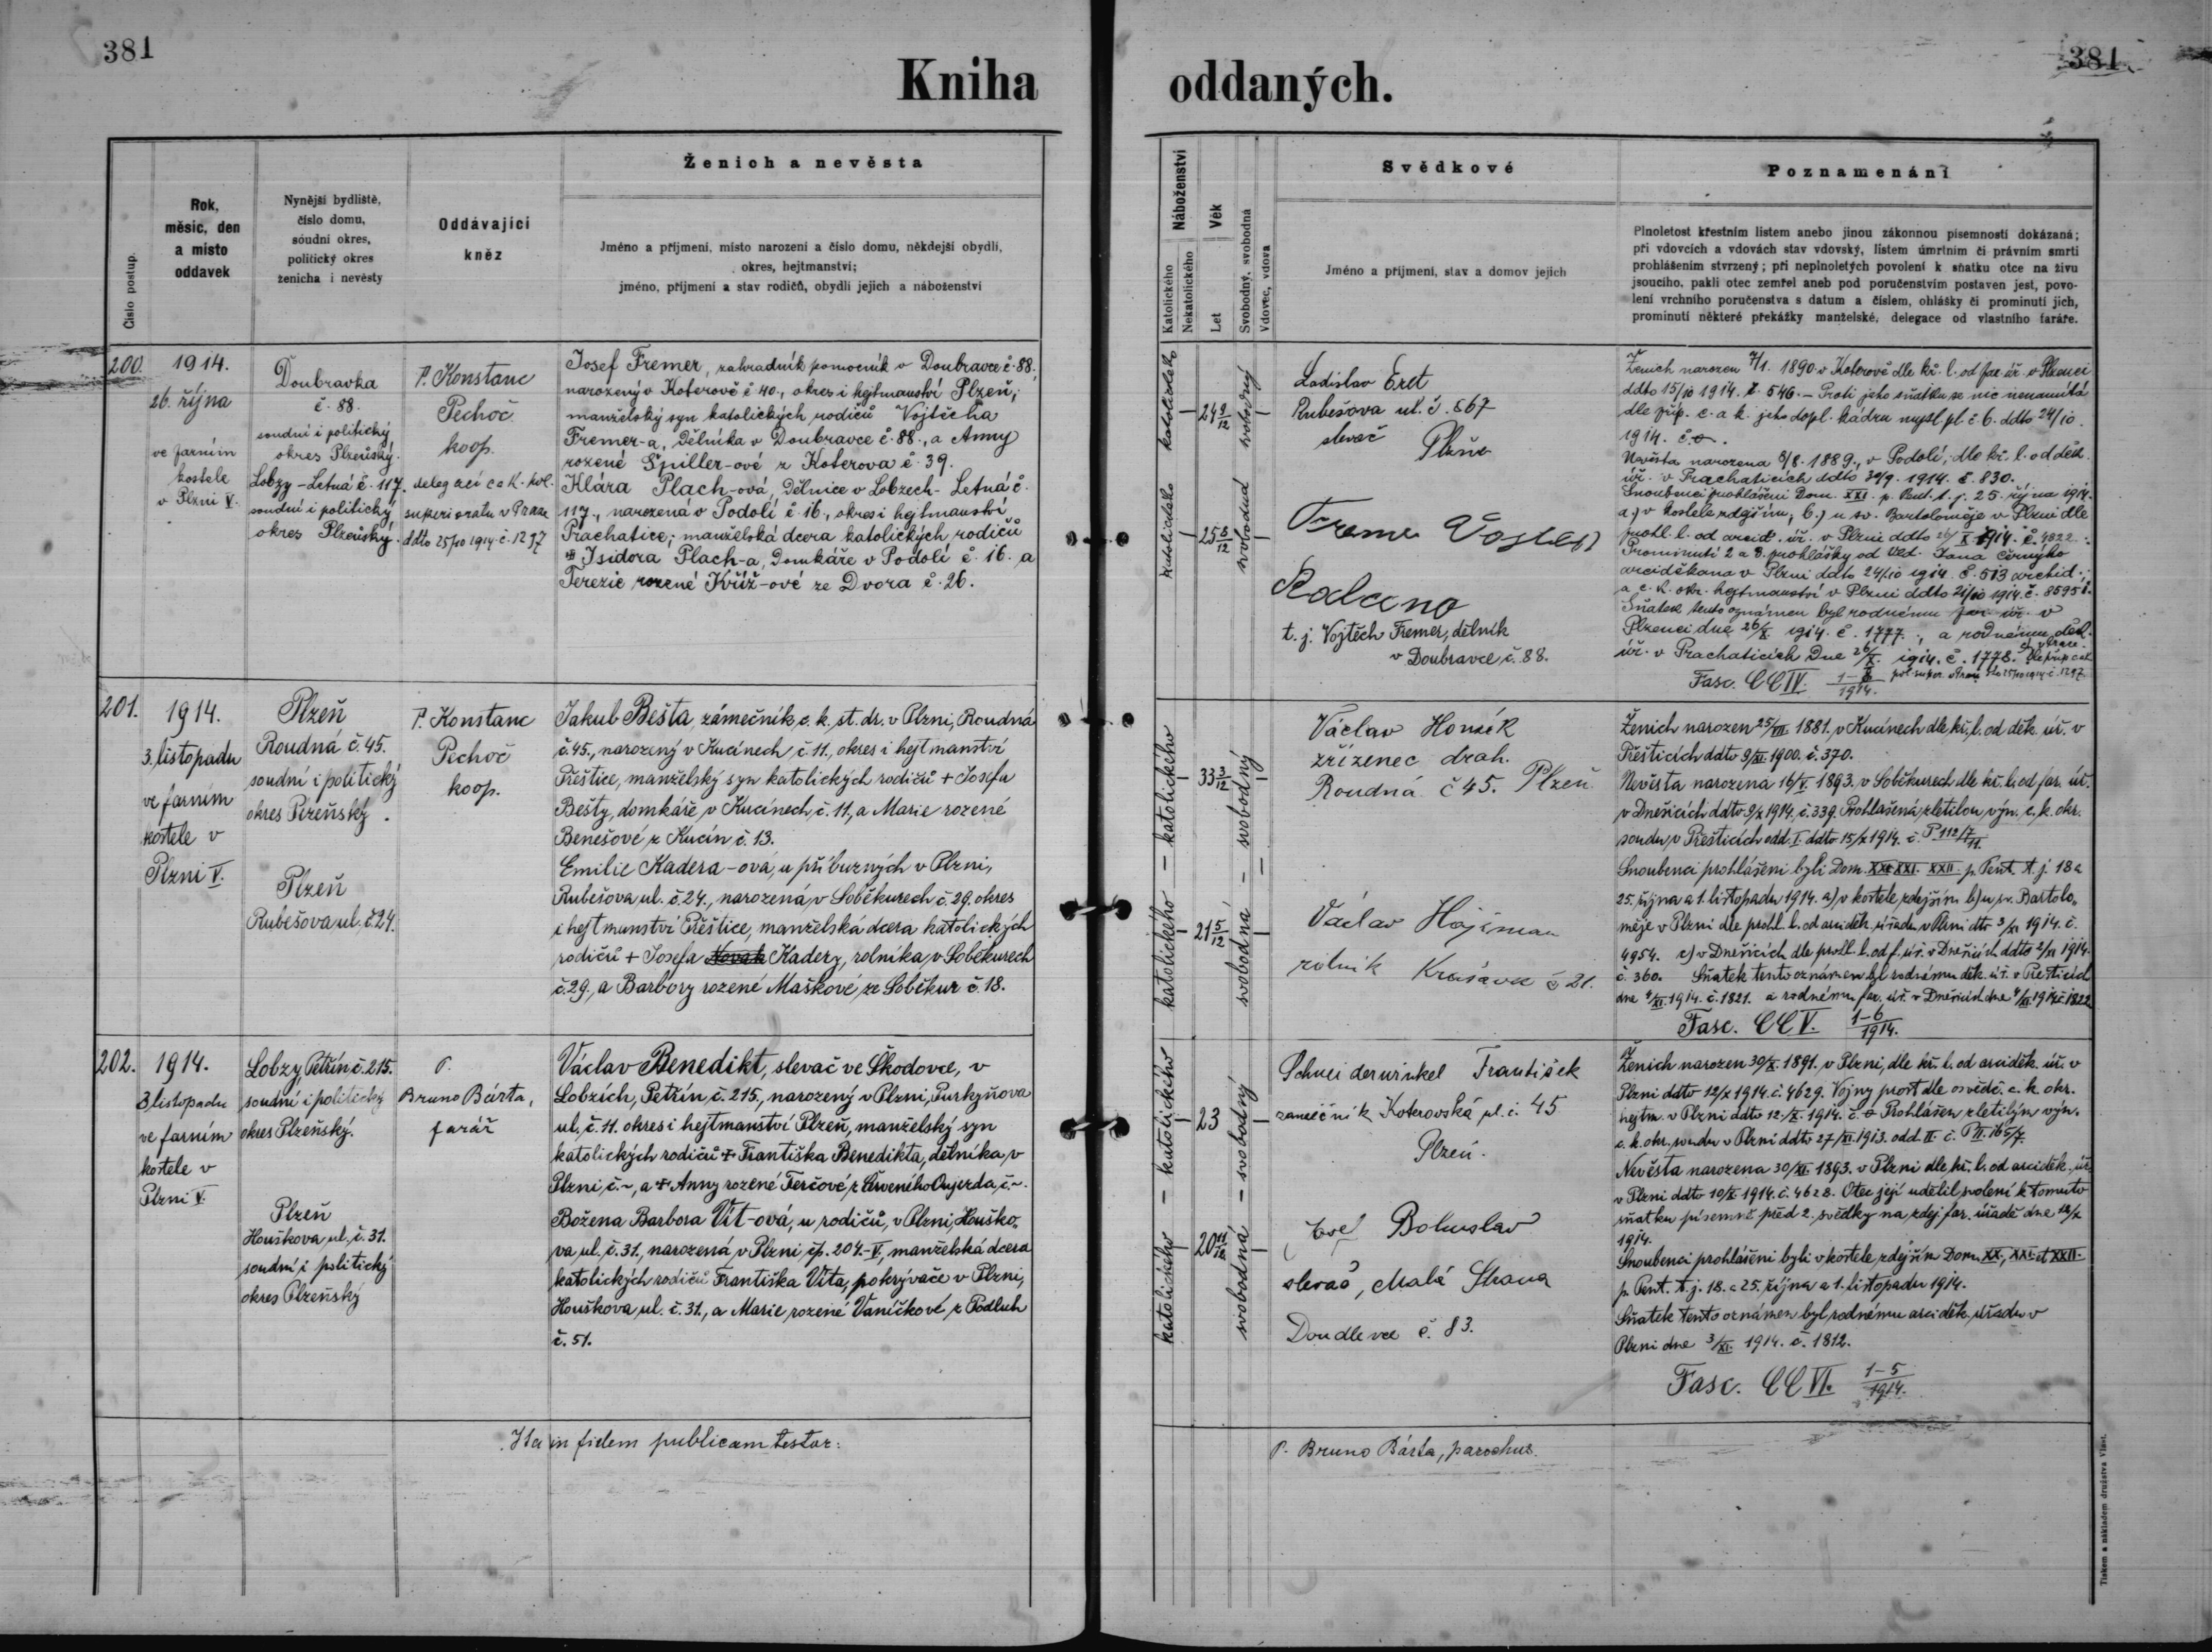 381
381
Kniha oddaných.
Číslo postup.
Rok,
měsíc, den
a místo
oddavek
Nynější bydliště,
číslo domu,
soudní okres,
politický okres
ženicha i nevěsty
Oddávající
kněz
Ženich a nevěsta
Jméno a příjmení, místo narození a číslo domu, někdejší obydlí,
okres, hejtmanství;
jméno, příjmení a stav rodičů, obydlí jejich a náboženství
Náboženství
Katolického
Nekatolického
Věk
Let
Svobodný, svobodná
Vdovec, vdova
Svědkové
Jméno a příjmení, stav a domov jejich
Poznamenání
Plnoletost křestním listem anebo jinou zákonnou písemností dokázaná;
při vdovcích a vdovách stav vdovský, listem úmrtním či právním smrti
prohlášením stvrzený; při neplnoletých povolení k sňatku otce na živu
jsoucího, pakli otec zemřel aneb pod poručenstvím postaven jest, povo-
lení vrchního poručenstva s datum a číslem, ohlášky či prominutí jich,
prominutí některé překážky manželské, delegace od vlastního faráře.
200.
1914.
26. října
ve farním
kostele
v Plzni V.
Doubravka
č. 88.
soudní i politický
okres Plzeňský.
Lobzy - Letná č. 117.
soudní i politický
okres Plzeňský.
P. Konstanc
Pechoč
koop.
delegací c. a k. pol.
superioratu v Praze
ddto 25/10 1914 č. 1297
Josef Fremer, zahradník pomocník v Doubravce č. 88.
narozený v Koterově č 40., okres i hejtmanství Plzeň,
manželský syn katolických rodičů Vojtěcha
Fremer-a, dělníka v Doubravce č. 88., a Anny
rozené Špiller-ové z Koterova č. 39.
Klára Plach-ová, dělnice v Lobzech - Letná č.
117., narozená v Podolí č. 16., okres i hejtmanství
Prachatice; manželská dcera katolických rodičů
Isidora Plach-a, domkáře v Podolí č. 16. a
Terezie rozené Kříž-ové ze Dvora č. 26.
katolického
katolického
24 9/12
25 8/12
svobodný
svobodná
Ladislav Eret
Rubešova ul. č. 867
slevač
Plzeň
t. j. Vojtěch Fremer, dělník
v Doubravce č. 88.
Ženich narozen 7/1. 1890. v Koterově dle kř. l. od far. úř. v Plzenci
ddto 15/10 1914. č. 546. - Proti jeho sňatku se nic nenamítá
dle příp. c. a k. jeho dopl. kádru č. 6. ddto 24/10.
1914. č.
Nevěsta narozena 8/8. 1889., v Podolí, dle kř. l. od děk.
úř. v Prachaticích ddto 30/9. 1914. č. 830.
Snoubenci prohlášeni Dom. XXI. p. Pent. t. j. 25. října 1914.
a) v kostele zdejším, b.) u sv. Bartoloměje v Plzni dle
prohl. l. od arcid. úř. v Plzni ddto 26/X 1914. č. 4822.
Prominutí 2 a 3. prohlášky od Vel. Jana Černýho
arciděkana v Plzni ddto 24/10 1914. č. 513 archid.;
a c. k. okr. hejtmanství v Plzni ddto 21/10 1914. č. 85951.
Sňatek tento oznámen byl rodnému far. úř. v
Plzenci dne 26/X. 1914. č. 1777., a rodnému děk.
úř. v Prachaticích Dne 26/X. 1914. č. 1778.
Fasc. CCIV. 1-8/1914.
201.
1914.
3. listopadu
ve farním
kostele v
Plzni V.
Plzeň
Roudná č. 45.
soudní i politický
okres Plzeňský.
Plzeň
Rubešova ul. č. 24.
P. Konstanc
Pechoč
koop.
Jakub Bešta, zámečník c. k. st. dr. v Plzni, Roudná
č. 45., narozený v Kucínech č. 11., okres i hejtmanství
Přeštice, manželský syn katolických rodičů + Josefa
Bešty, domkáře v Kucínech, č. 11, a Marie rozené
Benešové z Kucín č. 13.
Emilie Kadera-ová, u příbuzných v Plzni,
Rubešova ul. č. 24., narozená v Soběkurech č. 29. okres
i hejtmanství Přeštice, manželská dcera katolických
rodičů + Josefa Kadery, rolníka v Soběkurech
č. 29., a Barbory rozené Maškové, ze Soběkur č. 18.
katolického - katolického
33 3/12
21 5/12
svobodná - svobodný
Václav Honzík
zřízenec drah.
Roudná č 45. Plzeň
Václav Hajšman
rolník č 21.
Ženich narozen 25/VII. 1881. v Kucínech dle kř. l. od děk. úř. v
Přešticích ddto 9/XI. 1900. č. 370.
Nevěsta narozena 16/V. 1893. v Soběkurech dle kř. l. od far. úř.
v Dnešicích ddto 9/X 1914. č. 339. Prohlášená zletilou výn. c. k. okr.
soudu v Přešticích odd. I. ddto 15/X 1914. č. P 112/7 11.
Snoubenci prohlášeni byli Dom. XX. XXI. XXII. p. Pent. t. j. 18 a
25. října a 1. listopadu 1914. a) v kostele zdejším b) u sv. Bartolo-
měje v Plzni dle prohl. l. od arciděk. úřadu v Plzni dto 3/XI 1914. č.
4954. c) v Dnešicích dle prohl. l. od f. úř. v Dnešicích ddto 2/XI 1914.
č. 360. Sňatek tento oznámen byl rodnému děk. úř. v Přešticích
dne 4/XI. 1914. č. 1821. a rodnému far. úř. v Dnešicích dne 4/XI. 1914 č. 1822
Fasc. CCV. 1-6/1914.
202.
1914.
3 listopadu
ve farním
kostele v
Plzni V.
Lobzy, Petřín č. 215.
soudní i politický
okres Plzeňský.
Plzeň
Houškova ul. č. 31.
soudní i politický
okres Plzeňský
P.
Bruno Bárta,
farář
Václav Benedikt, slevač ve Škodovce, v
Lobzích, Petřín, č. 215., narozený v Plzni, Purkyňova
ul. č. 11. okres i hejtmanství Plzeň, manželský syn
katolických rodičů + Františka Benedikta, dělníka, v
Plzni, č. ~, a + Anny rozené Terčové, z Červeného Oujezda, č. ~.
Božena Barbora Vít-ová, u rodičů, v Plzni, Houško-
va ul. č. 31., narozená v Plzni čp. 204.-V, manželská dcera
katolických rodičů Františka Víta, pokrývače v Plzni,
Houškova ul. č. 31., a Marie rozené Vaníčkové z Podluh
č. 51.
katolického - katolického
23
20 11/12
svobodná - svobodný
Schneiderwinkel František
zámečník Koterovská ul. č. 45
Plzeň.
Bohuslav
slevač, Malá Strana
Doudlevce č. 83.
Ženich narozen 30/X. 1891. v Plzni, dle kř. l. od arciděk. úř. v
Plzni ddto 12/X 1914. č. 4629. Vojny prost dle osvědč. c. k. okr.
hejtm. v Plzni ddto 12/X. 1914. č. Prohlášen zletilým výn.
c. k. okr. soudu v Plzni ddto 27/XI. 1913. odd. II. č. P II. 165/7.
Nevěsta narozena 30/XI. 1893. v Plzni dle kř. l. od arciděk. úř.
v Plzni ddto 10/X. 1914. č. 4628. Otec její udělil svolení k tomuto
sňatku písemně před 2. svědky na zdej. far. úřadě dne 12/X
1914.
Snoubenci prohlášeni byli v kostele zdejším Dom. XX., XXI. et XXII.
p. Pent. t. j. 18. a 25. října a 1. listopadu 1914.
Sňatek tento oznámen byl rodnému arciděk. úřadu v
Plzni dne 3/XI. 1914. č. 1812.
Fasc. CCVI. 1-5/1914.
Ita in fidem publicam testor:
P. Bruno Bárta, parochus.
Tiskem a nákladem družstva Vlast.